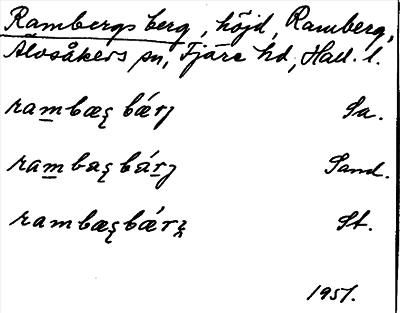 Rambergs berg, höjd, Ramberg,
Älvsåkers sn, Fjäre hd, Hall. l.
rambæʂ bǽrj Sa.
rambaʂ bárj Sand.
rambæʂ bǽrʝ St.
1951.